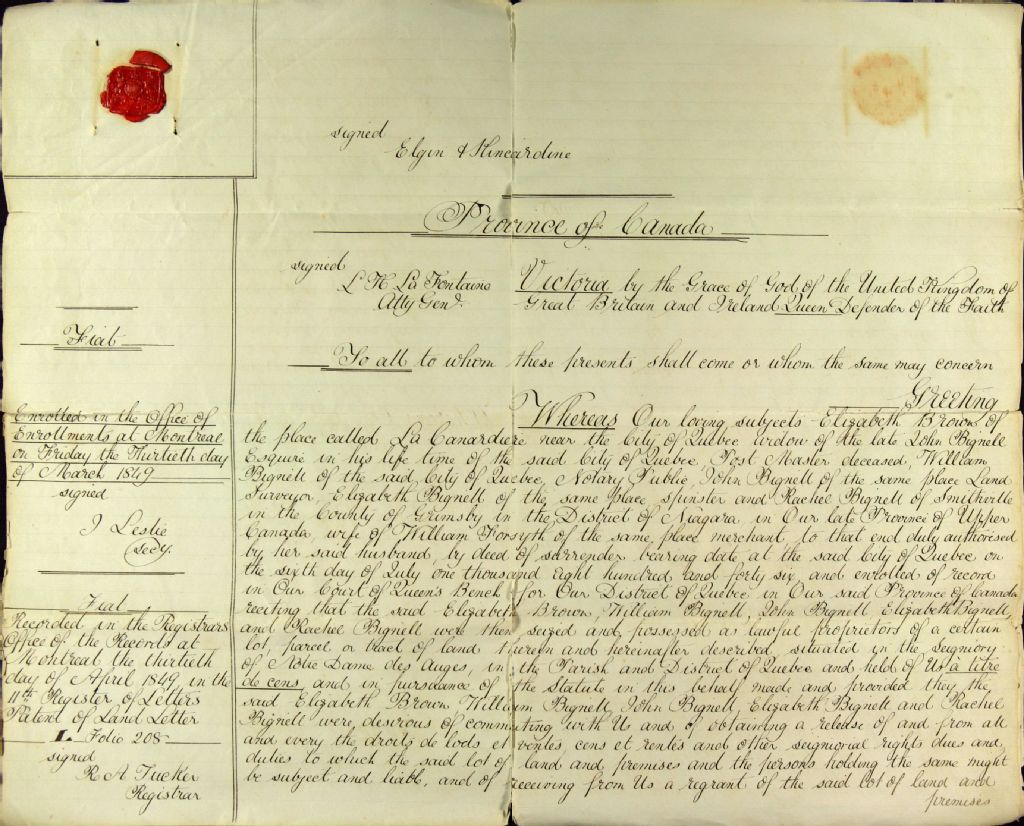 signed
Elgin & Kincardine
Province of Canada
signed
L H La Fontaine
Atty Genl.
Victoria by the Grace of God of the United Kingdom of
Great Britain and Ireland Queen Defender of the Faith
To all to whom these presents shall come or whom the same may concern
Greeting
Whereas Our loving subjects Elizabeth Brown of
the place called La Canardiere near the City of Quebec widow of the late John Bignell
Esquire in his life time of the said City of Quebec, Post Master deceased, William
Bignell of the said City of Quebec, Notary Public, John Bignell of the same place Land
Surveyor, Elizabeth Bignell of the same place, spinster and Rachel Bignell of Smithville
in the County of Grimsby in the District of Niagara, in Our late Province of Upper
Canada, wife of William Forsyth of the same place merchant, to that end duly authorised
by her said husband, by deed of surrender bearing date, at the said City of Quebec on
the sixth day of July one thousand eight hundred and forty six, and enrolled of record
in Our Court of Queen's Bench for Our District of Quebec in Our said Province of Canada
reciting that the said Elizabeth Brown, William Bignell, John Bignell Elizabeth Bignell,
and Rachel Bignell were then seized and possessed as lawful proprietors of a certain
lot, parcel or tract of land therein and hereinafter described, situated in the seigniory
of Notre Dame des Anges, in the Parish and District of Quebec and held of Us a titre
de cens, and in pursuance of the Statute in this behalf made and provided they the
said Elizabeth Brown William Bignell, John Bignell, Elizabeth Bignell and Rachel
Bignell were, desirous of commuting with Us and of obtaining a release of and from all
and every the droits de lods et ventes, cens et rentes and other seigniorial rights dues and
duties to which the said lot of land and premises and the persons holding the same might
be subject and liable, and of receiving from Us a regrant of the said lot of land and
premises
Fiat
Enrolled in the Office of
Enrollments at Montreal
on Friday the Thirtieth day
of March 1849
signed
J Leslie
Secy.
Fiat
Recorded in the Registrars
Office of the Records at
Montreal the thirtieth
day of April 1849 in the
11th Register of Letters
Patent of Land Letter
L Folio 208
signed
R. A Tucker
Registrar